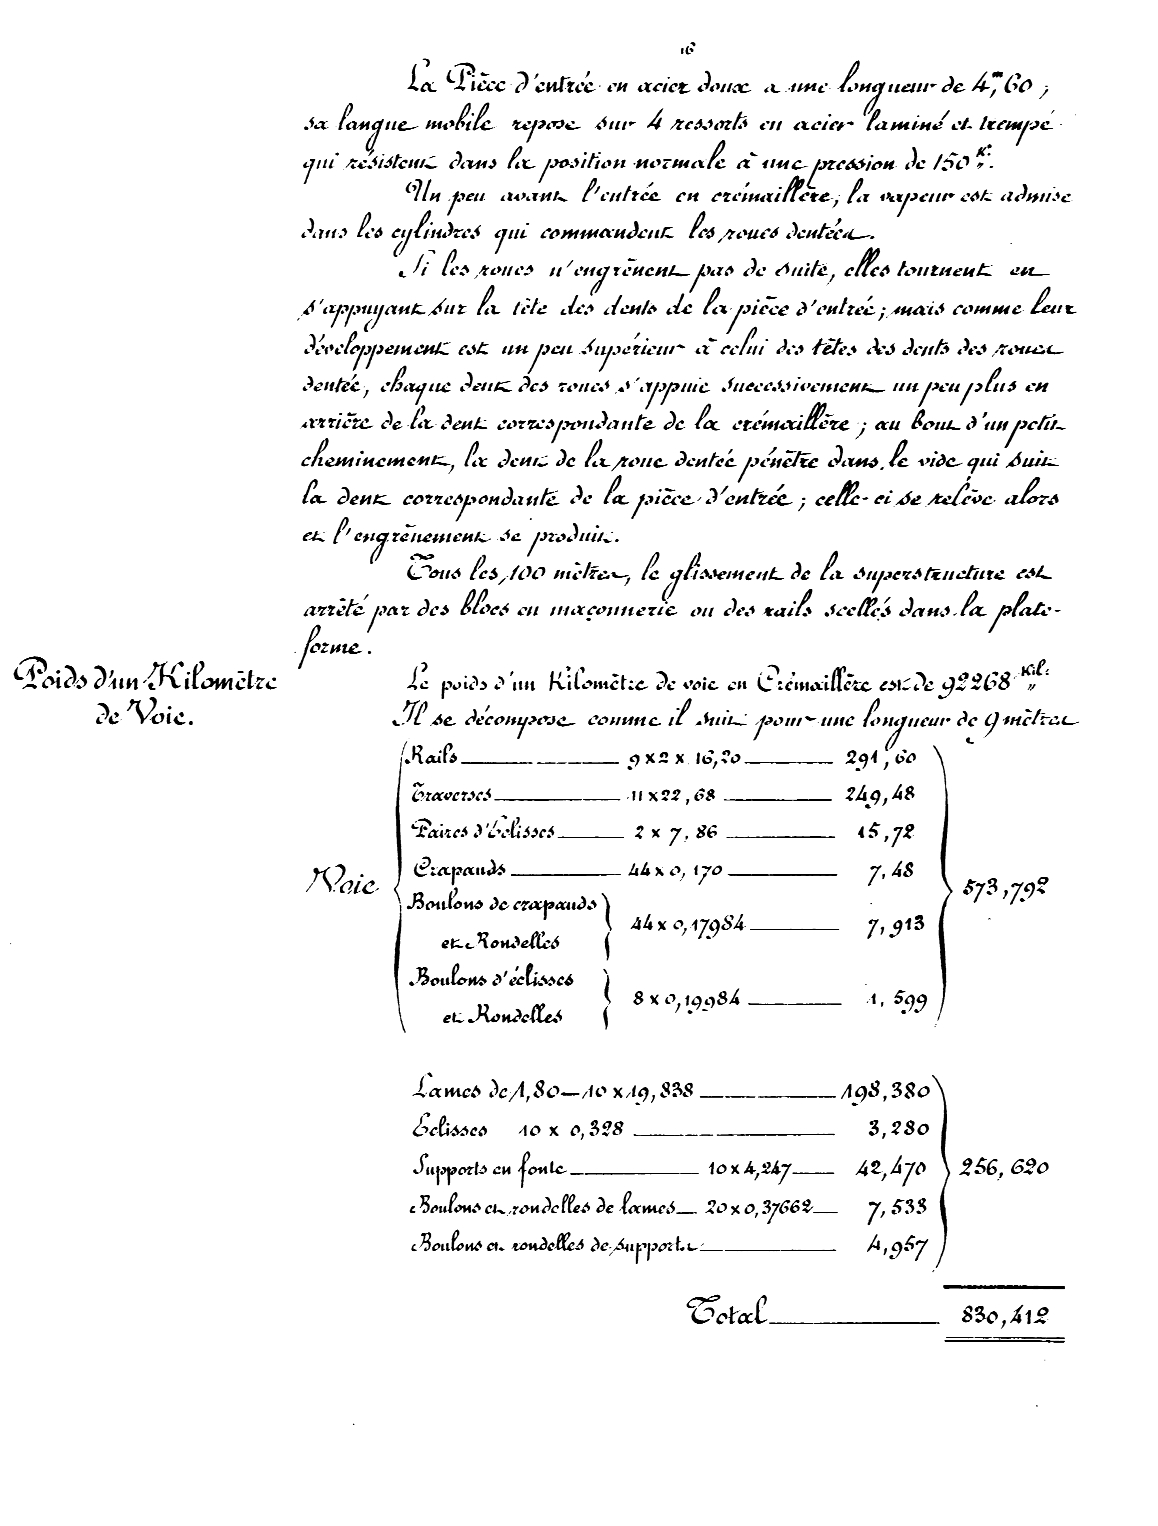 16
La Pièce d'entrée en acier doux a une longueur de 4,m60 ;
sa langue mobile repose sur 4 ressorts en acier laminé et trempé
qui résistent dans la position normale à une pression de 150 K.
Un peu avant l'entrée en crémaillère, la vapeur est admise
dans les cylindres qui commandent les roues dentées.
Si les roues n'engrènent pas de suite, elles tournent en
s'appuyant sur la tête des dents de la pièce d'entrée ; mais comme leur
développement est un peu supérieur à celui des têtes des dents des roues
dentée, chaque dent des roues s'appuie successivement un peu plus en
arrière de la dent correspondante de la crémaillère ; au bout d'un petit
cheminement, la dent de la roue dentée pénètre dans le vide qui suit
la dent correspondante de la pièce d'entrée ; celle-ci se relève alors
et l'engrènement se produit.
Tous les 100 mètres, le glissement de la superstructure est
arrêté par des blocs en maçonnerie ou des rails scellés dans la plate-
forme.
Poids d'un Kilomètre
de Voie.
Le poids d'un Kilomètre de voie en Crémaillère est de 92268 Kil. "
Il se décompose comme il suit pour une longueur de 9 mètres
Rails 9 x 2 x 16,20 291,60
Traverses 11 x 22,68 249,48
Paires d'Éclisses 2 x 7,86 15,72
Crapauds 44 x 0,170 7,48
Voie 573,792
Boulons de crapauds
et Rondelles 44 x 0,17984 7,913
Boulons d'éclisses
et Rondelles 8 x 0,19984 1,599
Lames de 1,80 — 10 x 19,838 198,380
Eclisses 10 x 0,328 3,280
Supports en fonte 10 x 4,247 42,470 256,620
Boulons et rondelles de lames 20 x 0,37662 7,533
Boulons et rondelles de supports 4,957
Total 830,412